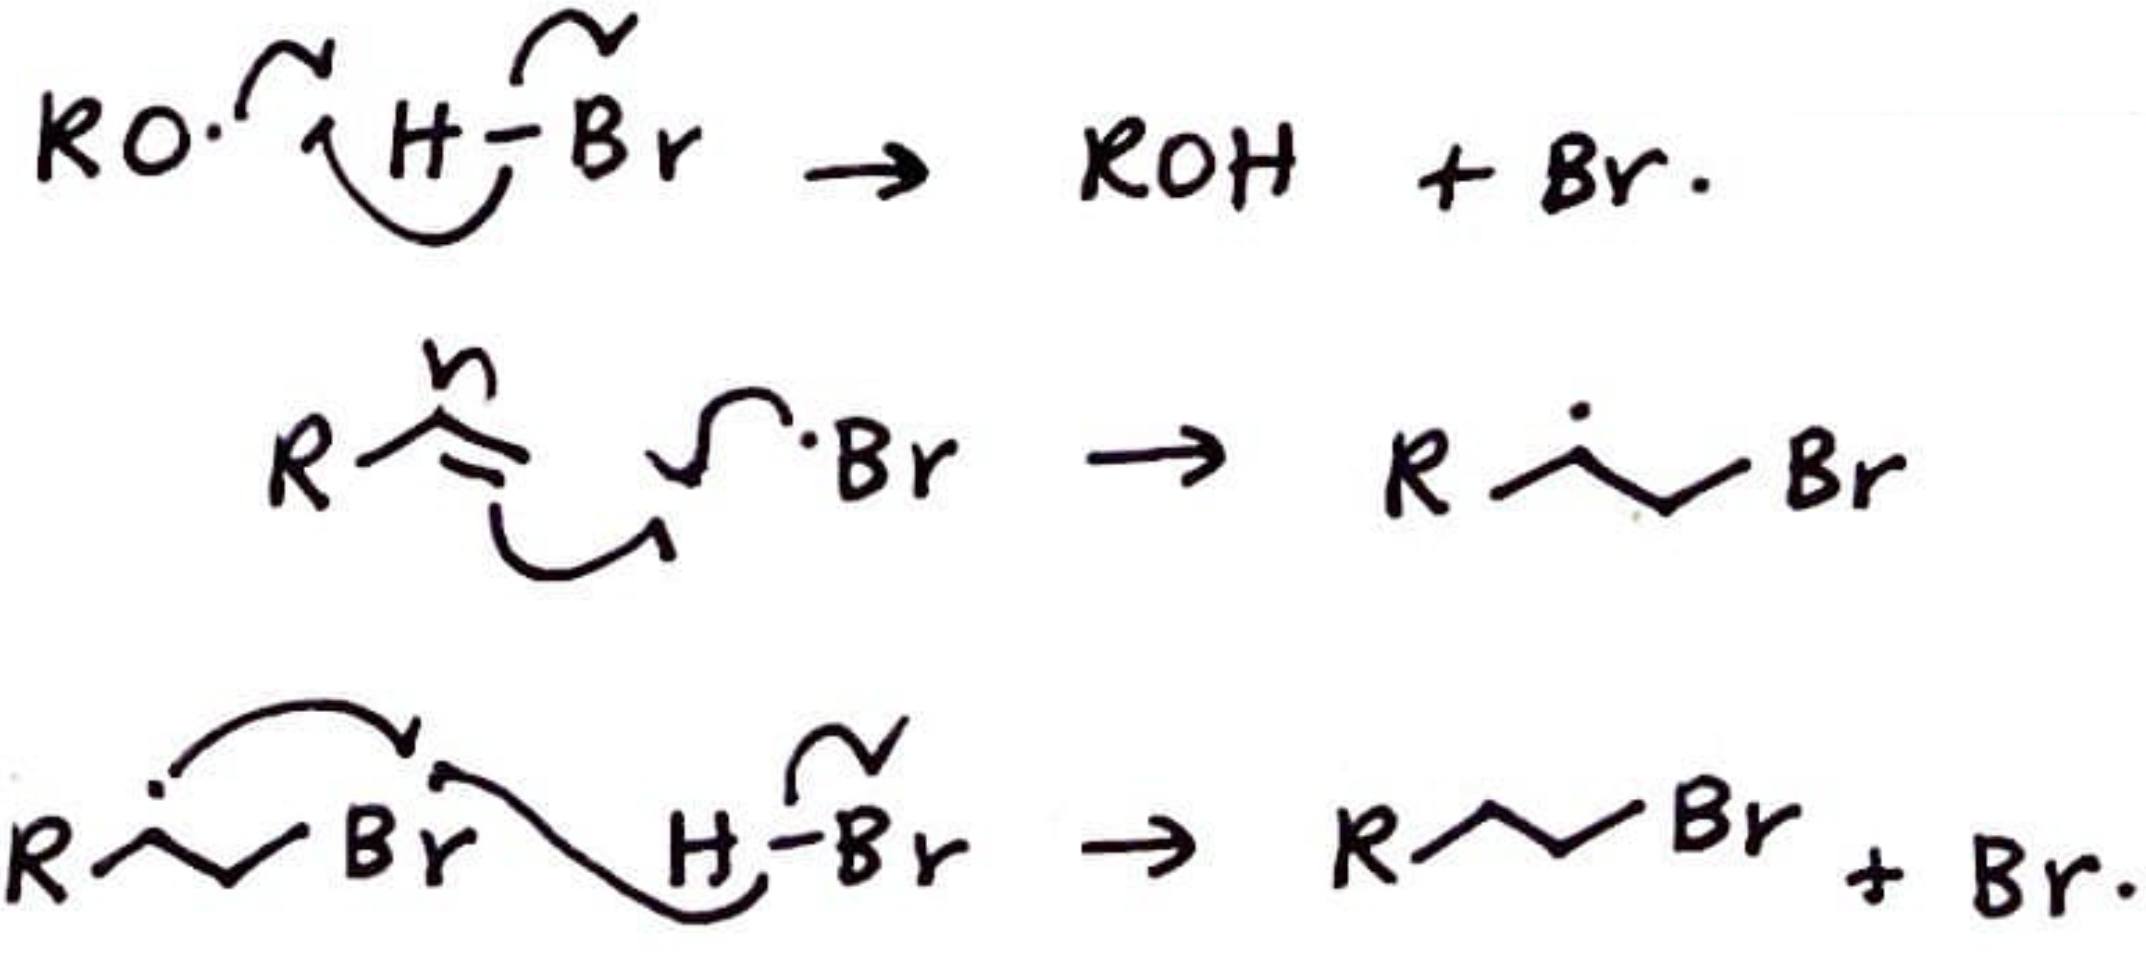 RO· H-Br → ROH + Br·
R ·Br → R Br
R Br H-Br → R Br + Br·